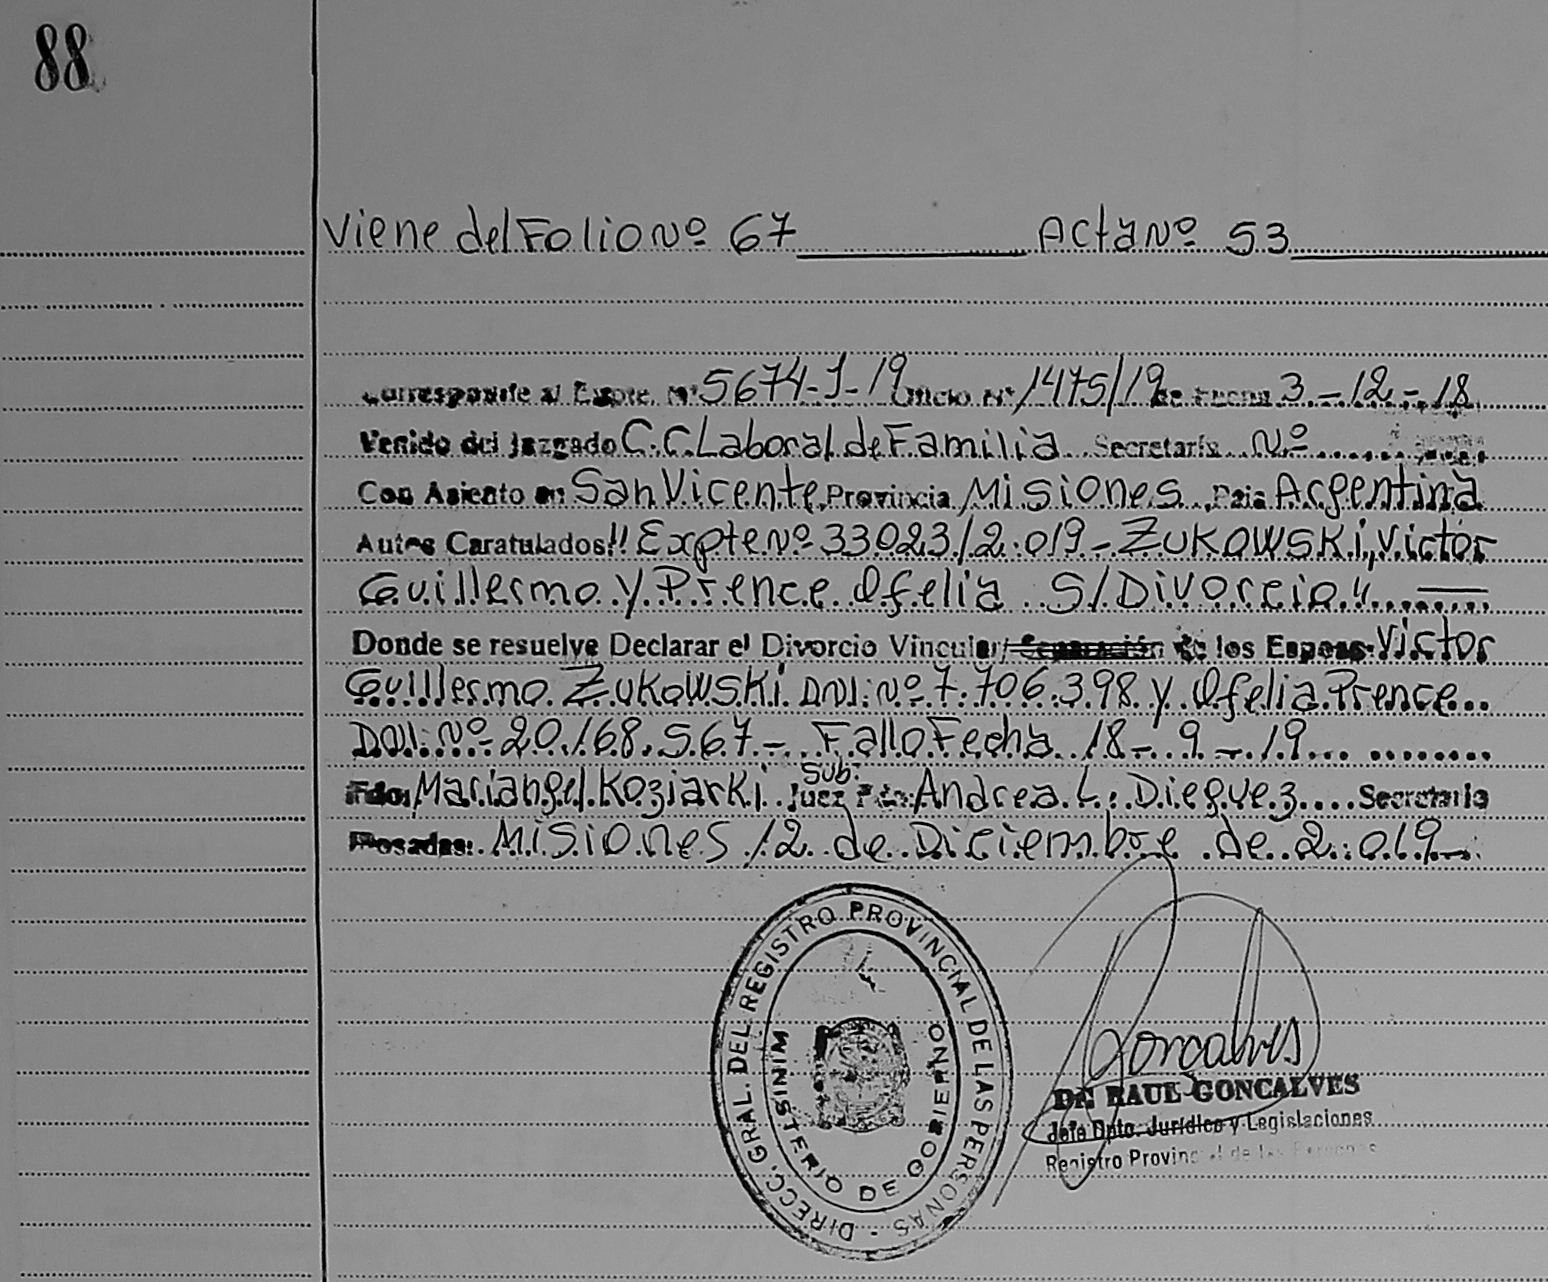 88
Viene del Folio Nº 67 Acta Nº 53
Corresponde al Expte. Nº 5674-J-19 Oficio Nº 1475/19 de Fecha 3-12-18
Venido del Juzgado C.C. Laboral de Familia Secretaría Nº
Con Asiento en San Vicente Provincia Misiones Pais Argentina
Autos Caratulados!! Expte Nº 33023/2.019 - ZUKOWSKI, Victor
Guillermo y Prence Ofelia S/Divorcio"
Donde se resuelve Declarar el Divorcio Vincular/Separación de los Esposos Victor
Guillermo ZUKOWSKI DNI: Nº 7.706.398 y Ofelia Prence
DNI: Nº 20.168.567 - Fallo Fecha 18-9-19
Sub:
Fdo: Mariangel Koziarki Juez Fdo: Andrea L. Dieguez Secretario
Posadas: Misiones 12 de Diciembre de 2.019
DIRECC. GRAL. DEL REGISTRO PROVINCIAL DE LAS PERSONAS -
MINISTERIO DE GOBIERNO
Goncalves
Dr. RAUL GONCALVES
Jefe Dpto. Jurídico y Legislaciones
Registro Provincial de las Personas